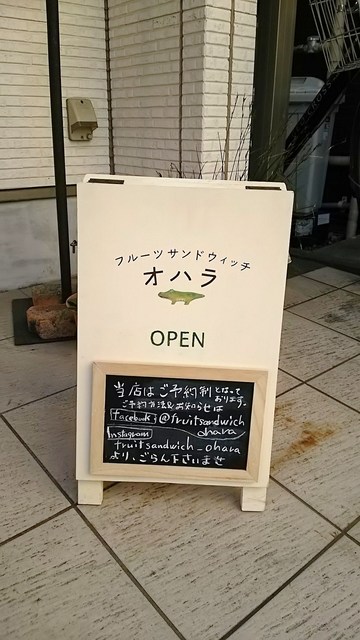 フルーツサンドウィッチ
オハラ
OPEN
当店はご予約制となって
おります。
ご予約方法&お知らせは
facebook; @fruitsandwich
ohara
Instagram;
fruitsandwich_ohara
より、ごらん下さいませ